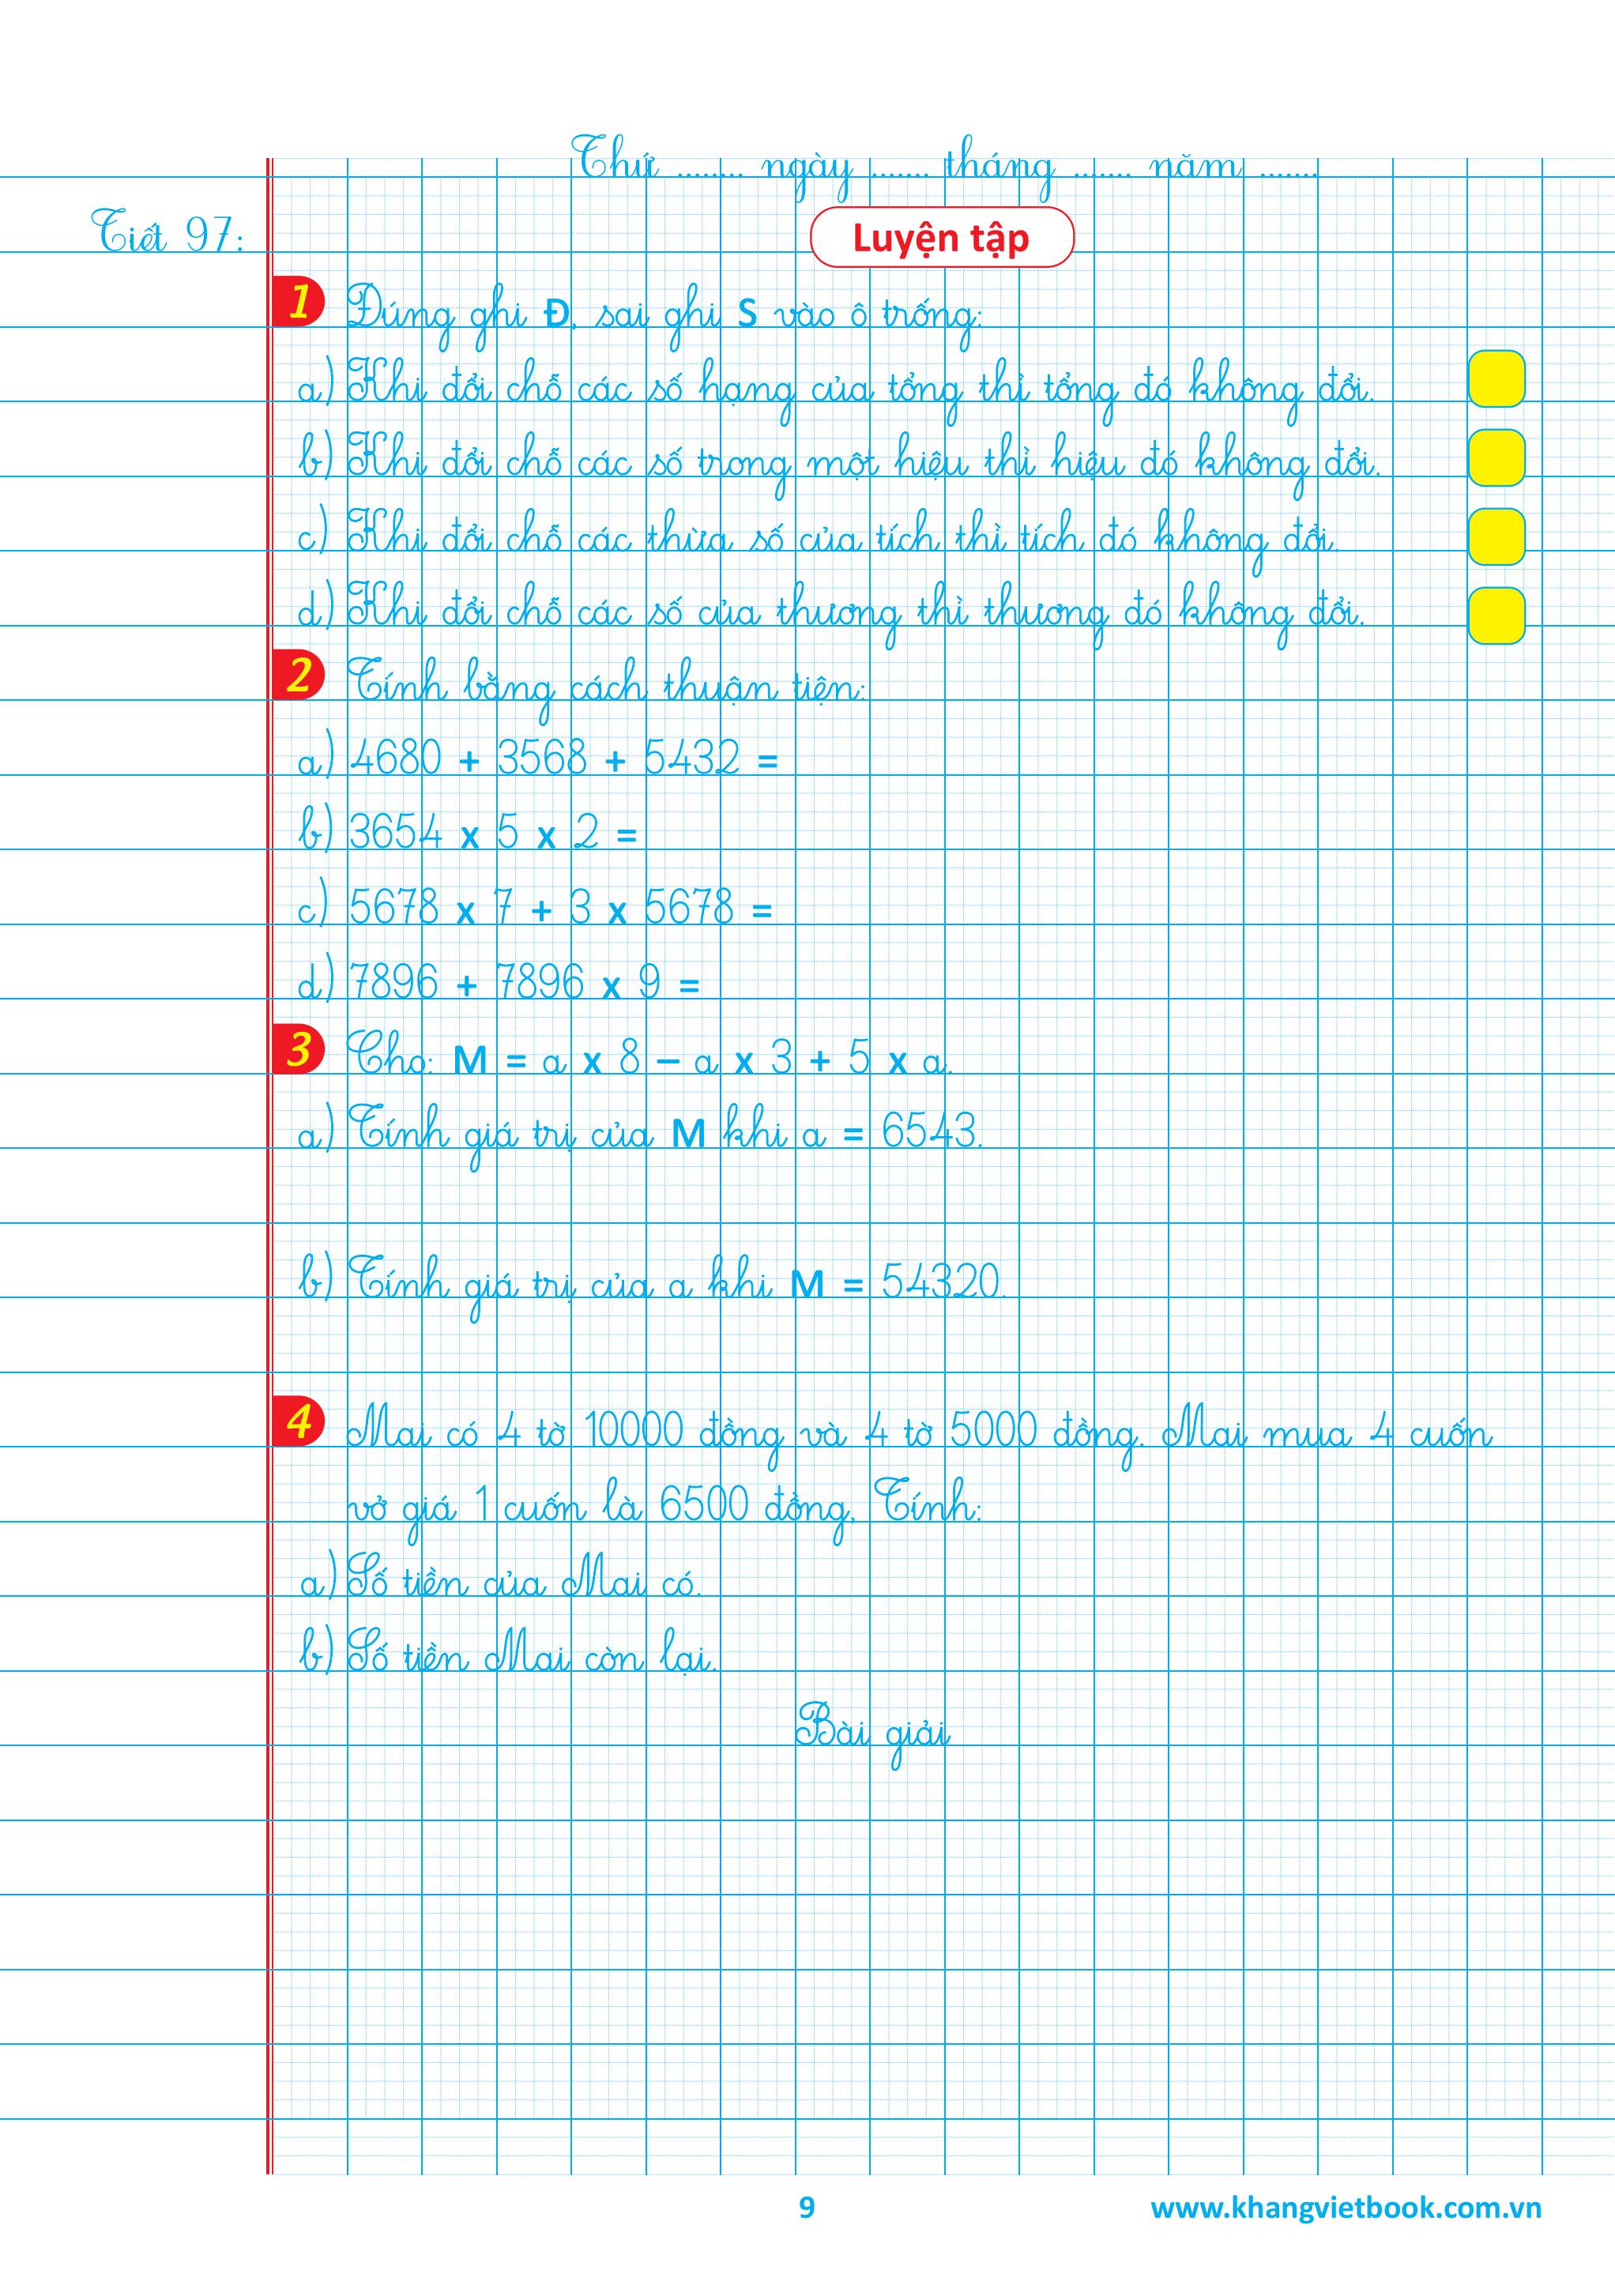 Thứ ........ ngày ....... tháng ....... năm .......
Tiết 97:
Luyện tập
1 Đúng ghi Đ, sai ghi S vào ô trống:
a) Khi đổi chỗ các số hạng của tổng thì tổng đó không đổi.
b) Khi đổi chỗ các số trong một hiệu thì hiệu đó không đổi.
c) Khi đổi chỗ các thừa số của tích thì tích đó không đổi.
d) Khi đổi chỗ các số của thương thì thương đó không đổi.
2 Tính bằng cách thuận tiện:
a) 4680 + 3568 + 5432 =
b) 3654 x 5 x 2 =
c) 5678 x 7 + 3 x 5678 =
d) 7896 + 7896 x 9 =
3 Cho: M = a x 8 – a x 3 + 5 x a.
a) Tính giá trị của M khi a = 6543.
b) Tính giá trị của a khi M = 54320.
4 Mai có 4 tờ 10000 đồng và 4 tờ 5000 đồng. Mai mua 4 cuốn
vở giá 1 cuốn là 6500 đồng, Tính:
a) Số tiền của Mai có.
b) Số tiền Mai còn lại.
Bài giải
9
www.khangvietbook.com.vn